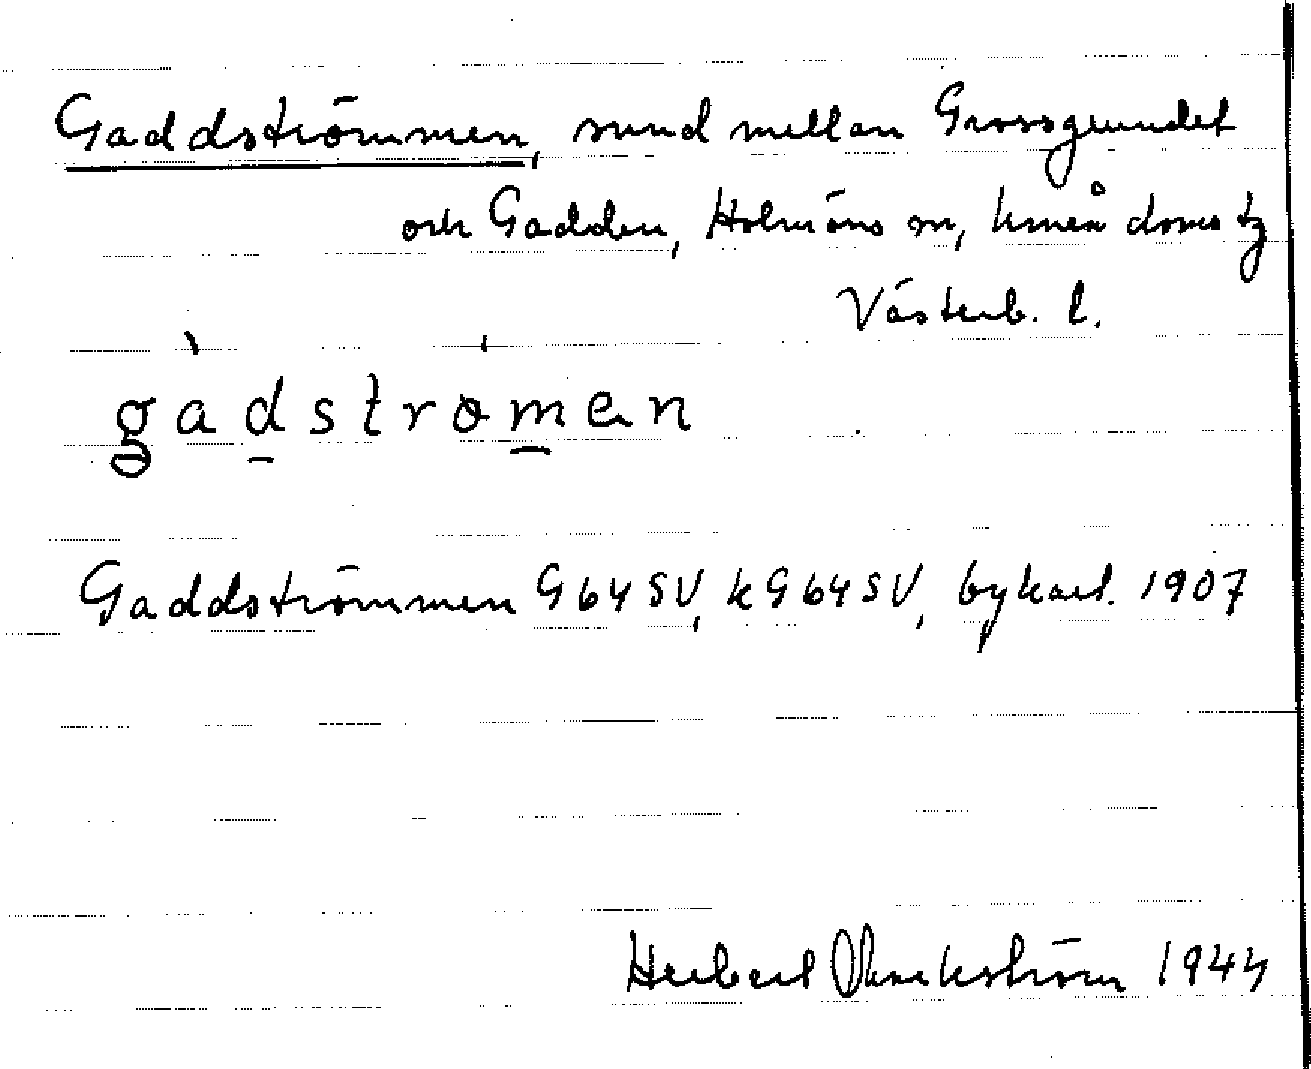 Gaddströmmen, sund mellan Grossgrundet
och Gadden, Holmöns sn, Umeå doms tg
Västerb. l.
gàdstrømen
Gaddströmmen G 64 SV, kG 64 SV, bykart. 1907
Herbert 1944